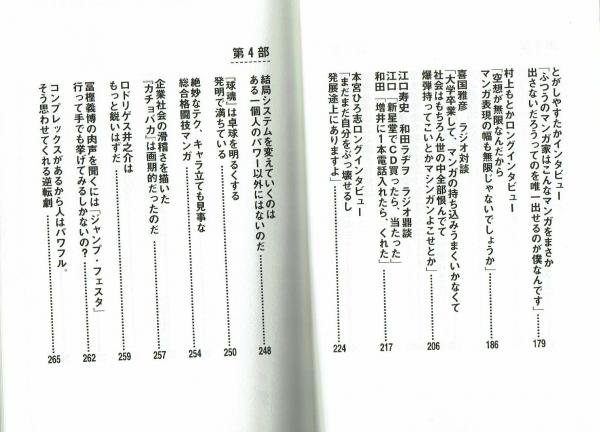 とがしやすたかインタビュー
「ふつうのマンガ家はこんなマンガをまさか
出さないだろうってのを唯一出せるのが僕なんです」
179
村上もとかロングインタビュー
「空想が無限なんだから
マンガ表現の幅も無限じゃないでしょうか」
186
喜国雅彦 ラジオ対談
「大学卒業して、マンガの持ち込みうまくいかなくて
社会はもちろん世の中全部恨んでて
爆弾持ってこいとかマシンガンよこせとか」
206
江口寿史 和田ラヂヲ ラジオ鼎談
江口「新星堂でCD買ったら、当たった」
和田「増井に1本電話入れたら、くれた」
217
本宮ひろ志ロングインタビュー
「まだまだ自分をぶっ壊せるし
発展途上にありますよ」
224
第4部
結局システムを変えていくのは
ある一個人のパワー以外にはないのだ
248
『球魂』は卓球を明るくする
発明で満ちている
250
絶妙なテク、キャラ立ても見事な
総合格闘技マンガ
254
企業社会の滑稽さを描いた
『カチョバカ』は画期的だったのだ
257
ロドリゲス井之介は
もっと鋭いはずだ
259
冨樫義博の肉声を聞くには「ジャンプ・フェスタ」
行って手でも挙げてみるしかないの?
262
コンプレックスがあるから人はパワフル。
そう思わせてくれる逆転劇
265